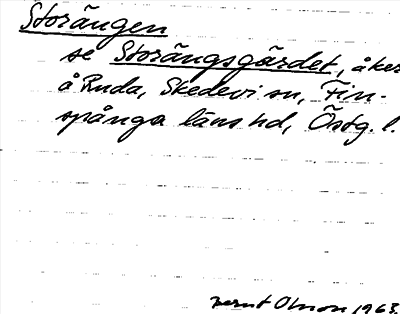 Storängen
se Storängsgärdet, åker
å Ruda, Skedevi sn, Fin-
spånga läns hd, Östg. l.
Bernt Olsson 1963.